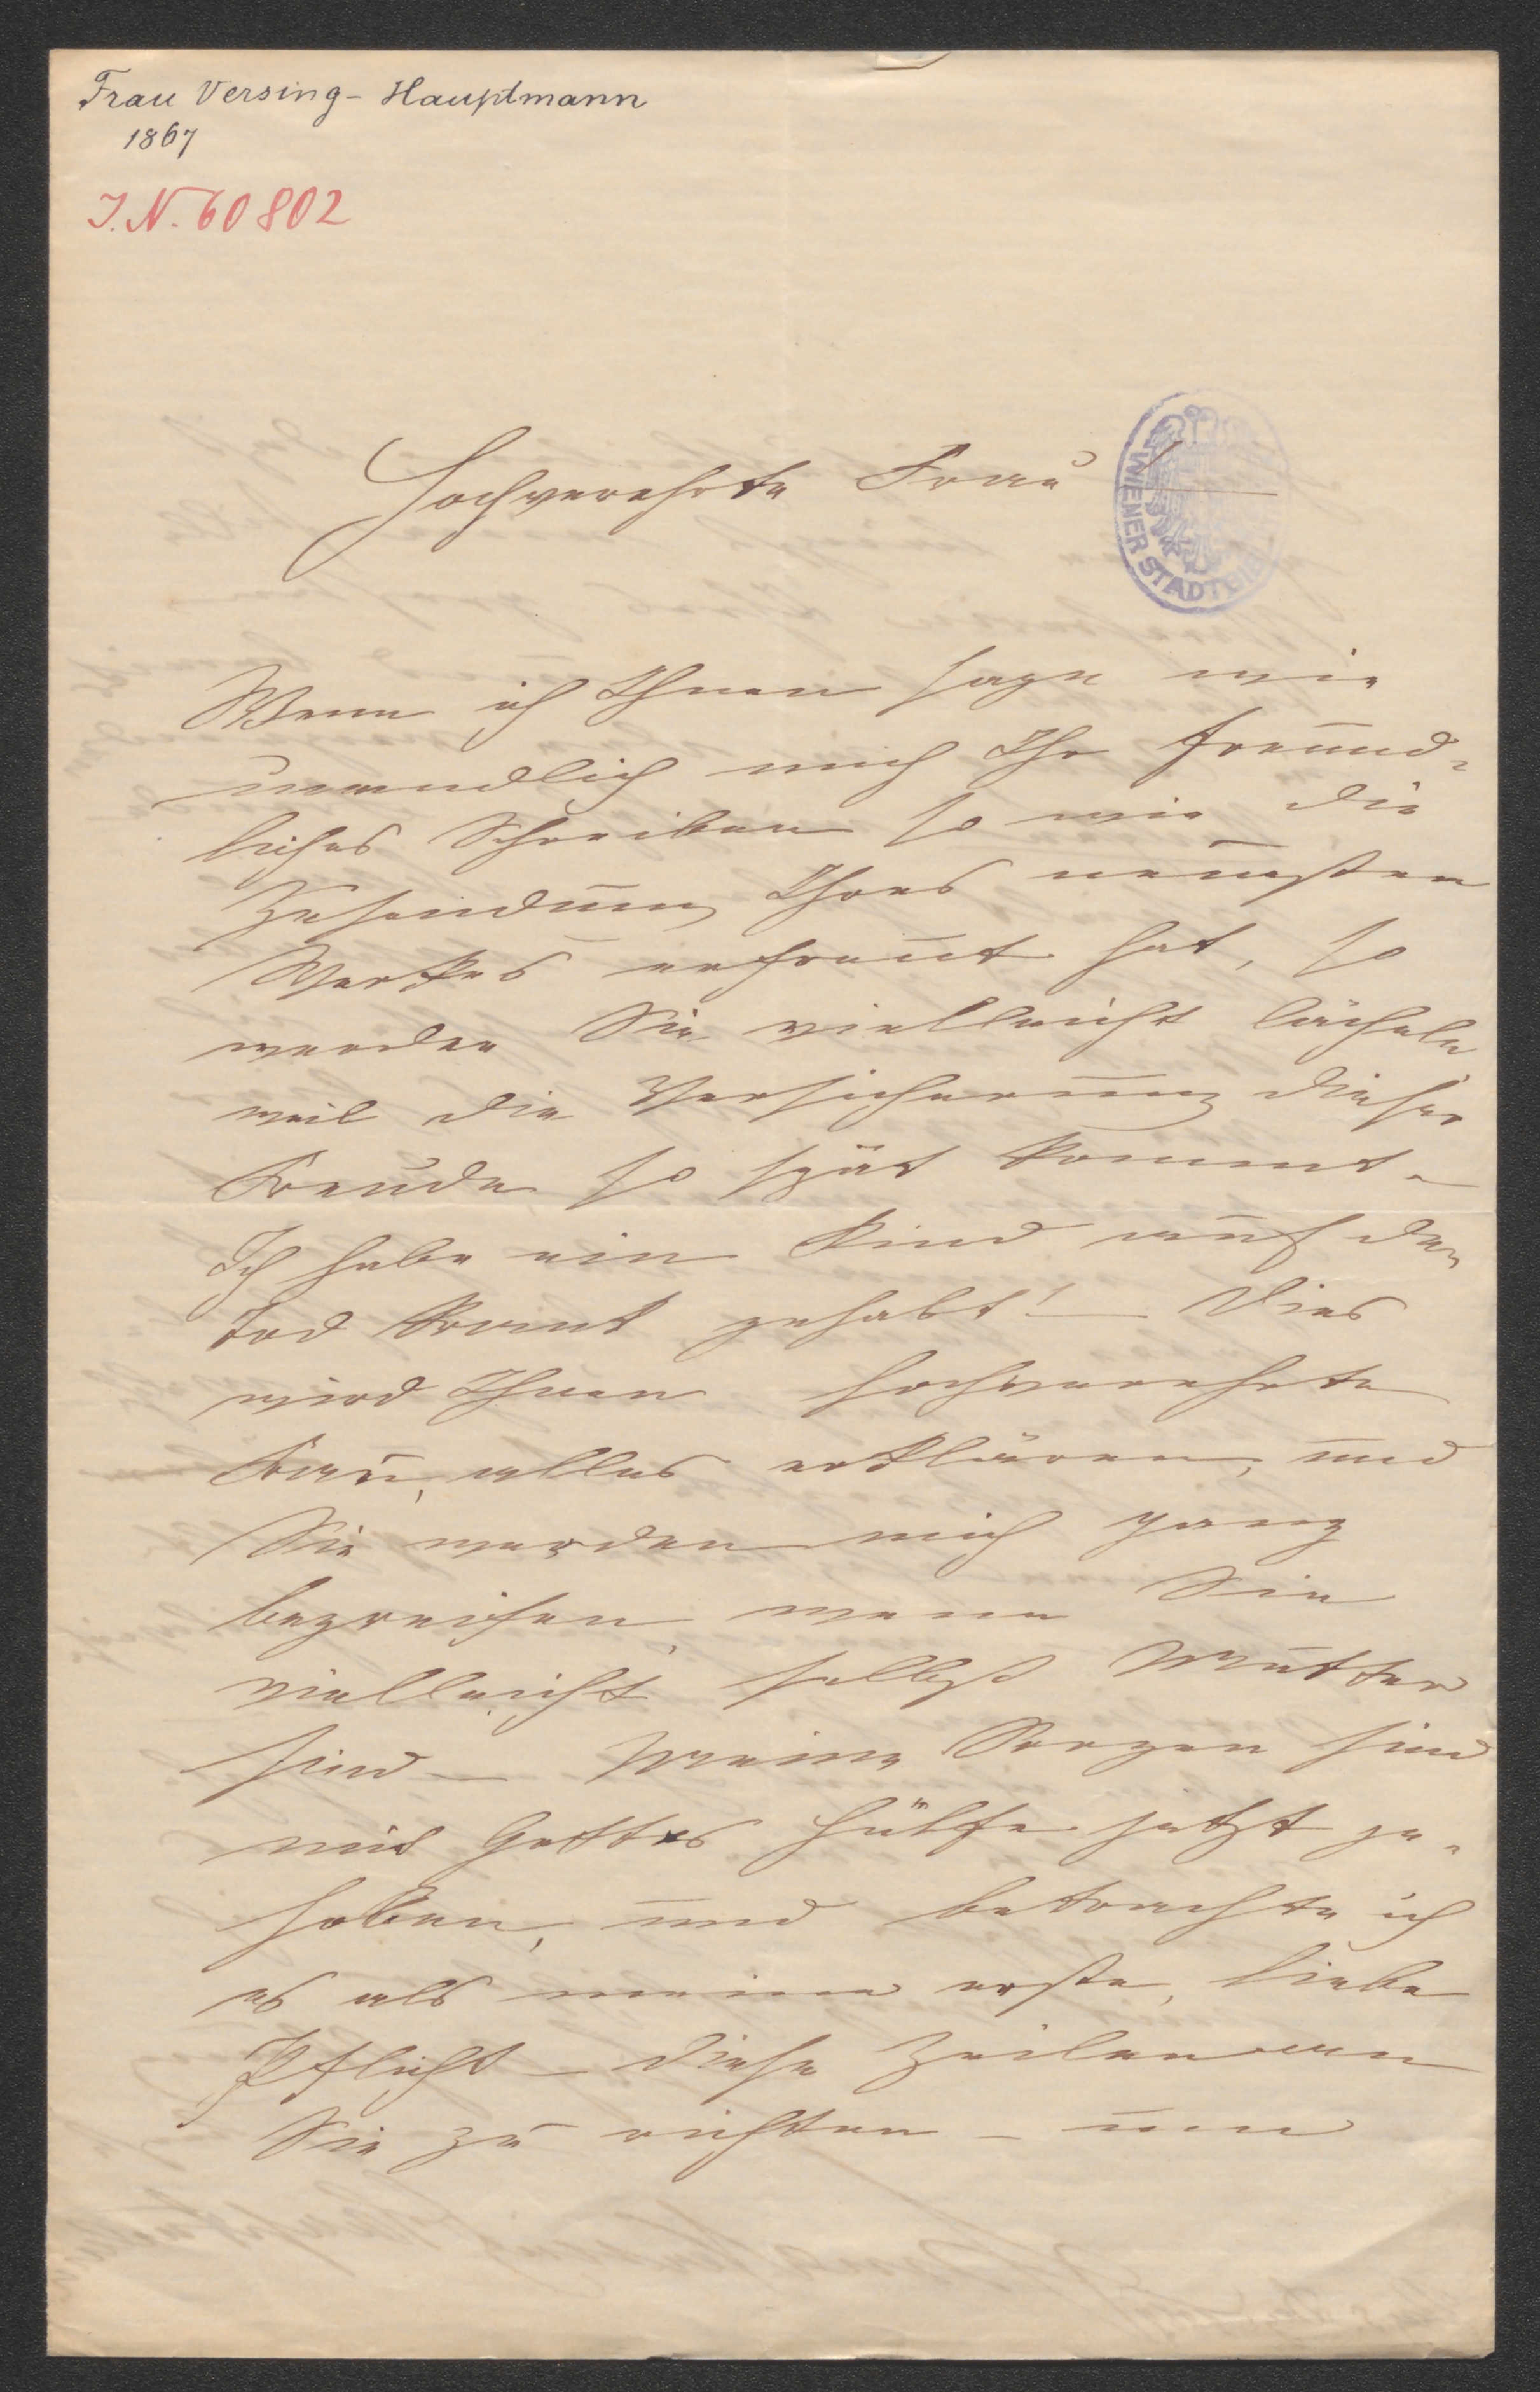 Frau Versing-Hauptmann
1867
J.N. 60802
WIENER STADTBIB
Hochverehrte Frau!
Wenn ich Ihnen sage wie
unendlich mich Ihr freund-
liches Schreiben so wie die
Zusendung Ihres neuesten
Werkes erfreut hat, so
werden Sie vielleicht lächeln
weil die Versicherung dieser
Freude so spät kommt –
Ich habe ein Kind auf den
Tod krank gehabt! – Dies
wird Ihnen hochverehrte
Frau, alles erklären, und
Sie werden mich ganz
begreifen, wenn Sie
vielleicht selbst Mutter
sind – Meine Sorgen sind
mit Gottes Hülfe jetzt ge-
hoben, und betrachte ich
es als meine erste, liebe
Pflicht – diese Zeilen an
Sie zu richten – und